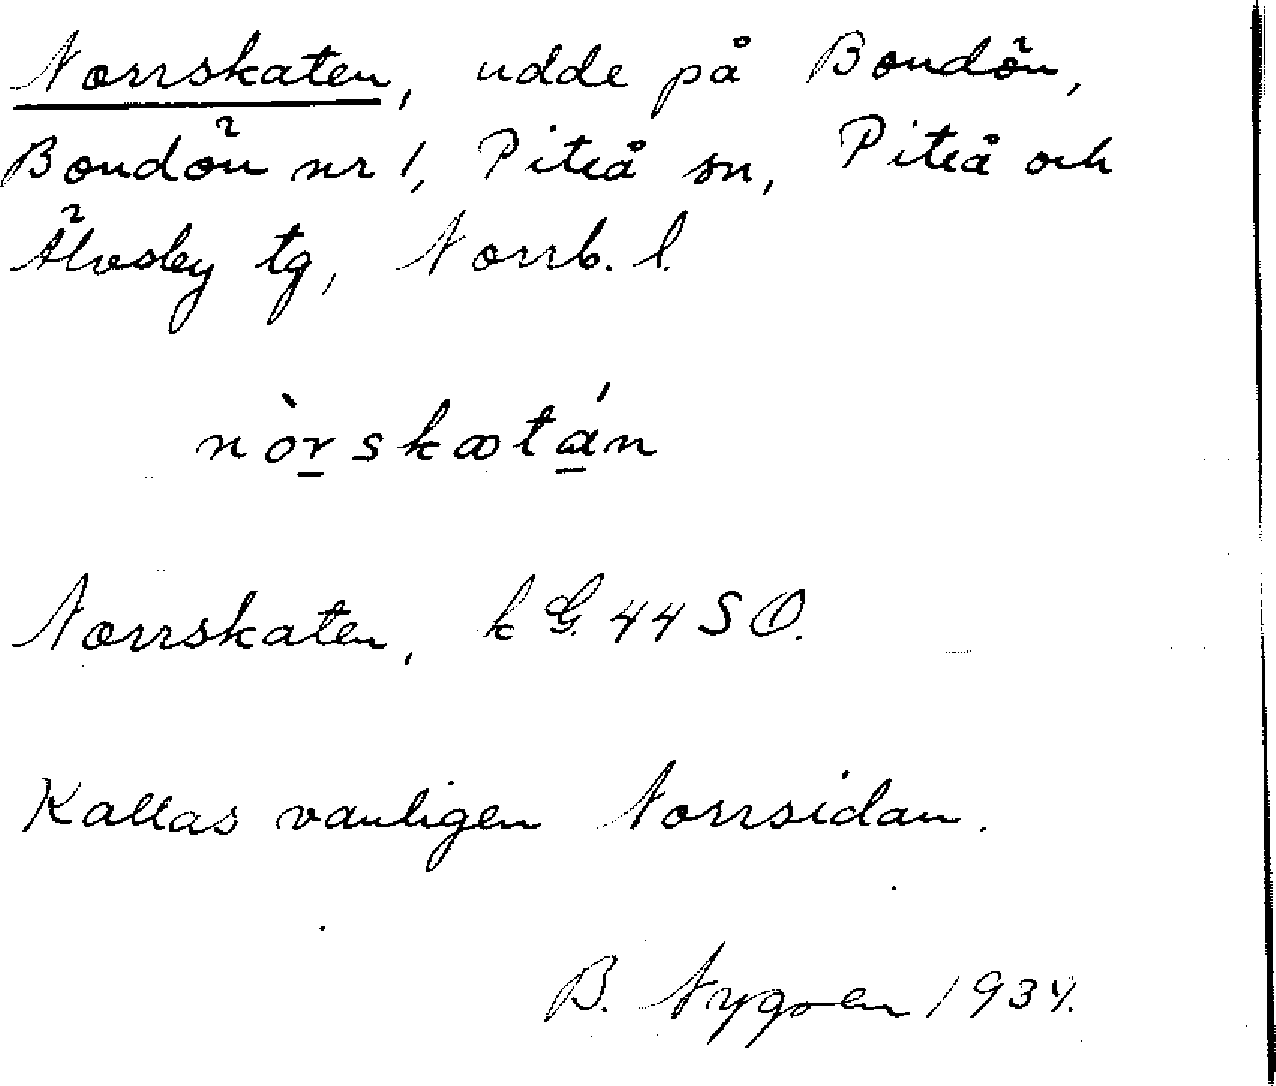 Norrskaten, udde på Bondön,
Bondön nr 1, Piteå sn, Piteå och
Älvsby tg, Norrb. l.
nòrskætán
Norrskaten, k G. 44 SO.
Kallas vanligen Norrsidan.
B. Nygren 1934.